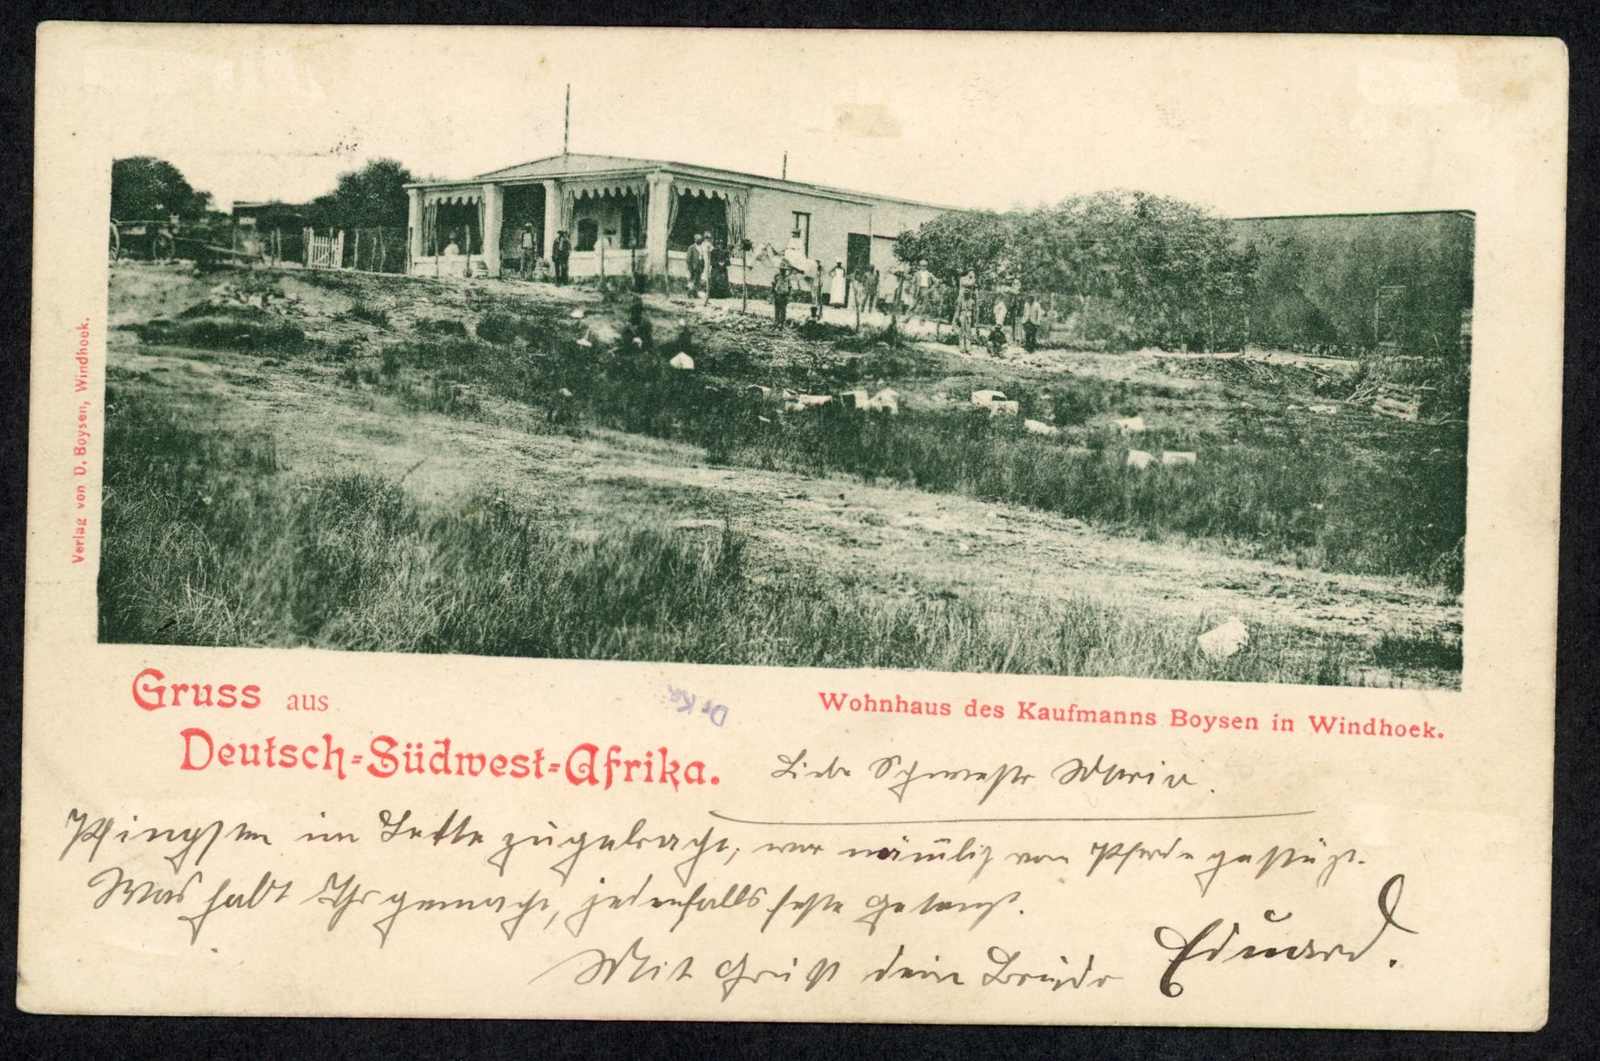 Verlag von D. Boysen, Windhoek.
Gruss aus
Deutsch-Südwest-Afrika.
Wohnhaus des Kaufmanns Boysen in Windhoek.
Dr Ka
Liebe Schwester Maria.
Pfingsten im Bette zugebracht, war nämlich vom Pferde gestürzt.
Was habt Ihr gemacht, jedenfalls feste getanzt.
Mit Gruß dein Bruder Eduard.